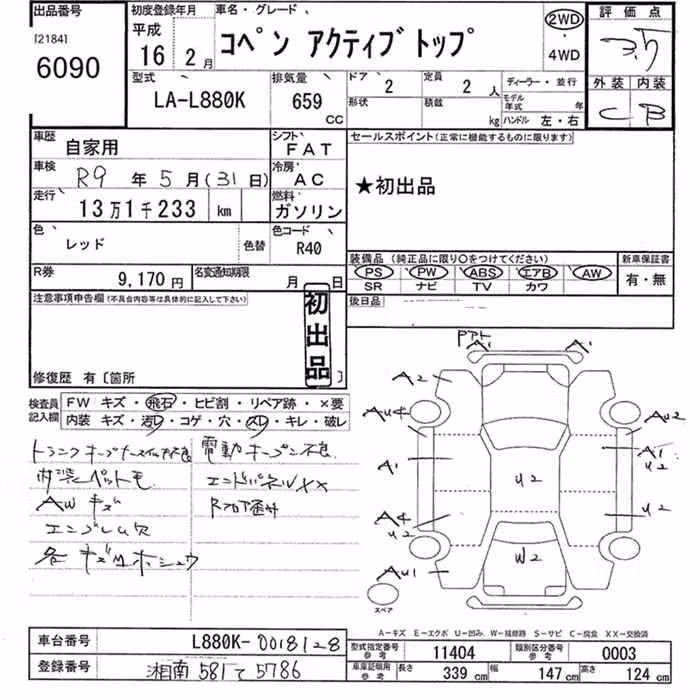 出品番号
[2184]
6090
初度登録年月
平成
16 2月
車名・グレード
コペン アクティブトップ
2WD
・
4WD
評価点
3.5
外装 内装
C B
型式
LA-L880K
排気量
659
CC
ドア
2
定員
2人
ディーラー・並行
形状
積載
kg
モデル年式 年
ハンドル 左・右
車歴
自家用
シフト
FAT
車検
R9 年 5月(31日)
冷房
AC
走行
13万1千233 km
燃料
ガソリン
色
レッド
色替
色コード
R40
R券
9,170円
名変通知期限
月 日
セールスポイント(正常に機能するものに限ります)
★初出品
装備品(純正品に限り○をつけてください)
PS PW ABS エアB AW
SR ナビ TV カワ
新車保証書
有・無
後日品
注意事項申告欄(不具合内容等は具体的に記入して下さい)
初出品
修復歴 有〔箇所 〕
検査員記入欄
FW キズ・飛石・ヒビ割・リペア跡・×要
内装 キズ・汚レ・コゲ・穴・スレ・キレ・破レ
電動オープン不良
内装ペットモ
エンドパネルXX
AWキズ
Rフロア歪ミ
エンブレム欠
各キズ凹ホシュウ
A1 A1
A2
AU4 AU2
A1 A1
U2
U2
A4
U2
U2
W2
AU1
スペア
A-キズ E-エクボ U-凹み W-補修跡 S-サビ C-腐食 XX-交換済
車台番号
L880K-0018128
登録番号
湘南 581 て 5786
型式指定番号
参考
11404
類別区分番号
参考
0003
車庫証明用
参考
長さ
339 cm
幅
147 cm
高さ
124 cm